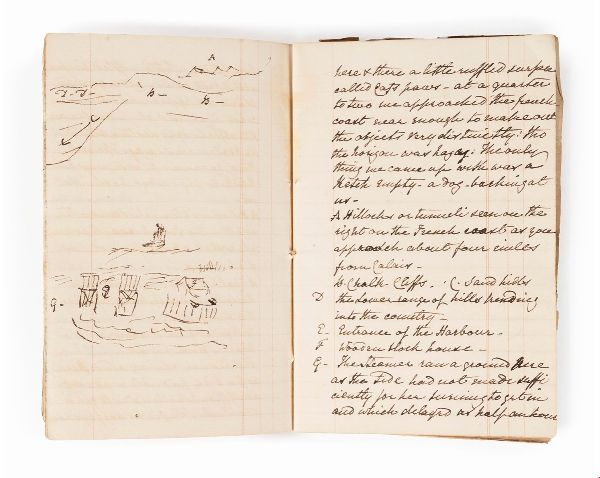 A
D - D -
B -
B -
G -
E
here & there a little ruffled surface
called Cats paws - at a quarter
to two we approached the french
coast near enough to make out
the objects very distinctly. tho
the horizon was hazey: The only
thing we came up with was a
Ketch empty - a dog barking at
us -
A Hillocks or tumuli seen on the
right on the French coast as you
approach about four miles
from Calais -
B Chalk Cliffs. - C. Sand hills
D the lower range of hills trending
into the country -
E - Entrance of the Harbour -
F Wooden block house -
G - The Steamer ran a ground here
as the tide had not made suffi
ciently for her to get in
and which delayed us half an hour